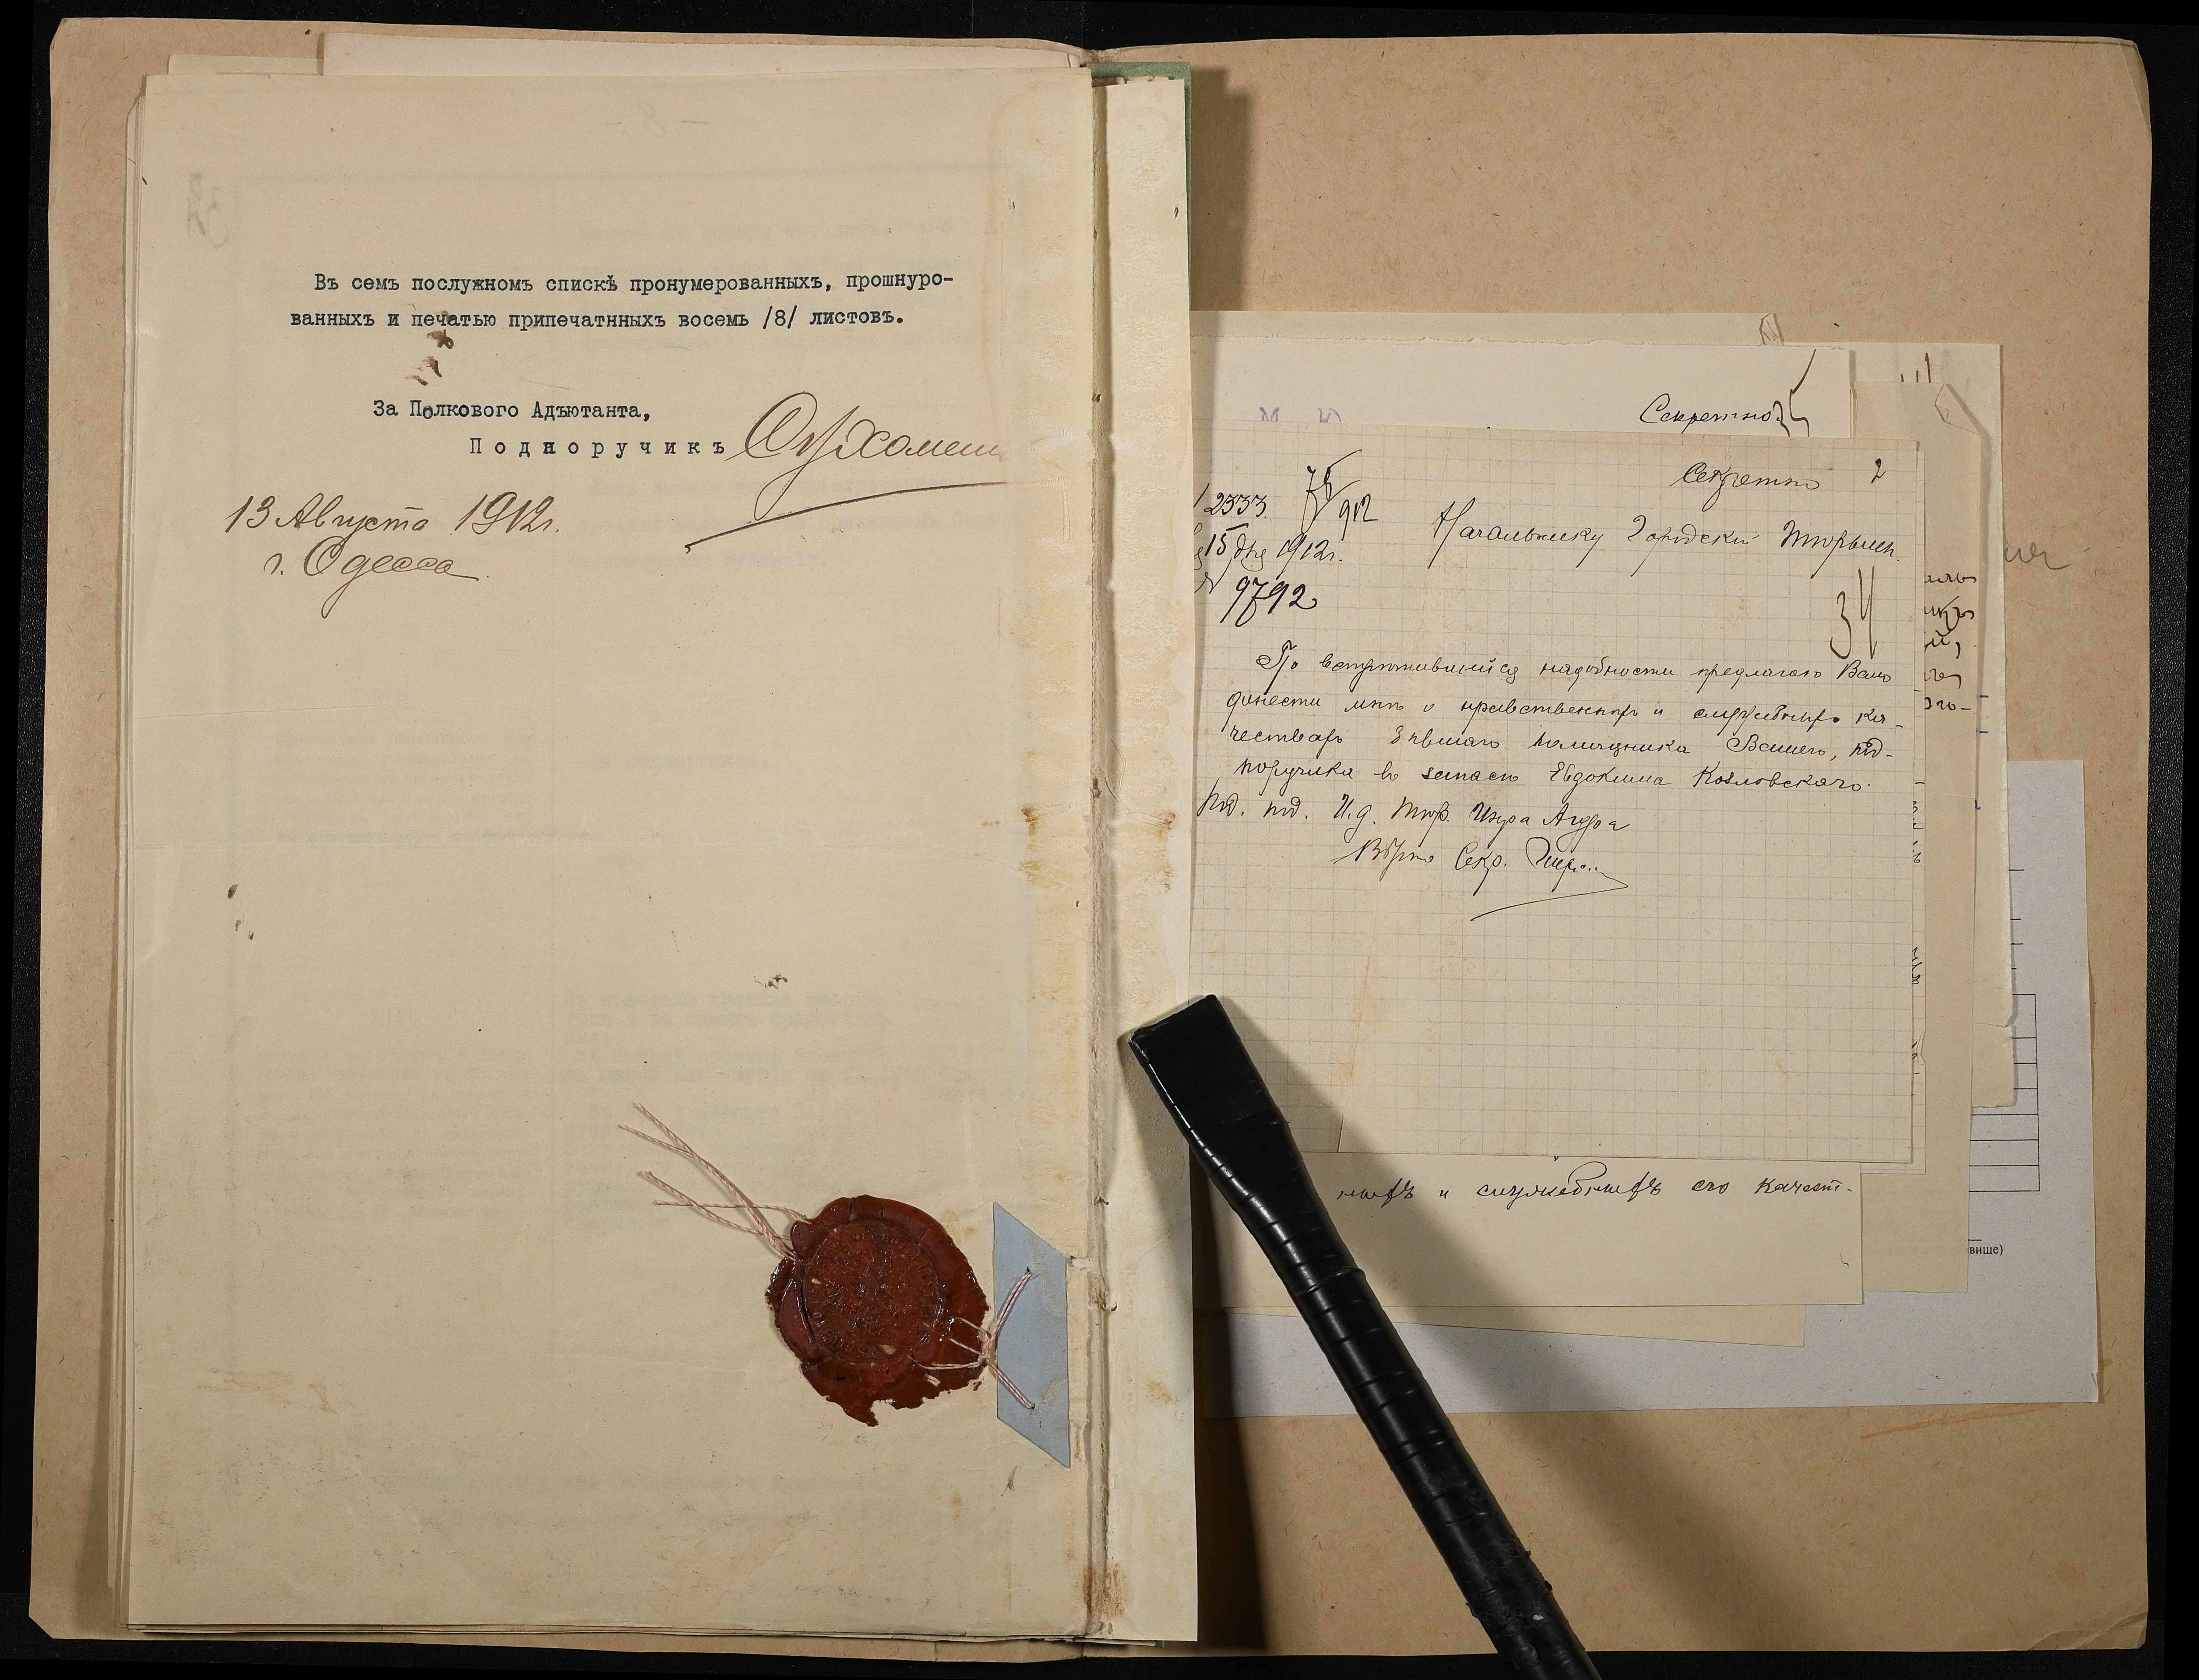 Въ семъ послужномъ спискѣ пронумерованныхъ, прошнуро-
ванныхъ и печатью припечатнныхъ восемь /8/ листовъ.
За Полкового Адъютанта,
Подпоручикъ
13 Августа 1912г.
г. Одесса
Секретно
35
Секретно 2
2333
Начальнику Городской Тюрьмы
15 1912г.
9792
34
По встрѣтившейся надобности предлагаю Вамъ
донести мнѣ о нравственныхъ и служебныхъ ка-
чествахъ бывшаго помощника Вашего, под-
поручика въ запасѣ Евдокима Козловскаго.
Под. под. И.д. Тюр.
Вѣрно Секр.
ныхъ и служебныхъ его качест-
вище)